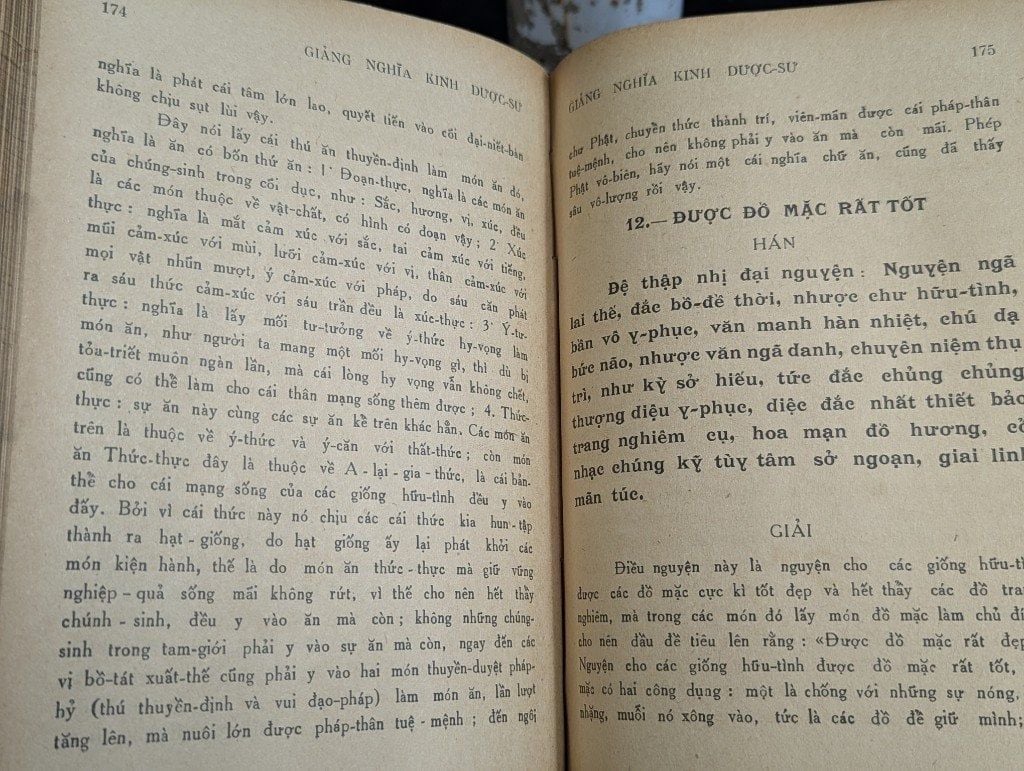 174
GIẢNG NGHĨA KINH DƯỢC-SƯ
nghĩa là phát cái tâm lớn lao, quyết tiến vào cõi đại-niết-bàn
không chịu sụt lùi vậy.
Đây nói lấy cái thú ăn thuyền-định làm món ăn đó,
nghĩa là ăn có bốn thứ ăn : 1· Đoạn-thực, nghĩa là các món ăn
của chúng-sinh trong cõi dục, như : Sắc, hương, vị, xúc, đều
là các món thuộc về vật-chất, có hình có đoạn vậy ; 2· Xúc
thực : nghĩa là mắt cảm xúc với sắc, tai cảm xúc với tiếng,
mũi cảm-xúc với mùi, lưỡi cảm-xúc với vị, thân cảm-xúc với
mọi vật nhũn mượt, ý cảm-xúc với pháp, do sáu căn phát
ra sáu thức cảm-xúc với sáu trần đều là xúc-thực : 3· Ý-tư-
thực : nghĩa là lấy mối tư-tưởng về ý-thức hy-vọng làm
món ăn, như người ta mang một mối hy-vọng gì, thì dù bị
tỏa-triết muôn ngàn lần, mà cái lòng hy vọng vẫn không chết,
cũng có thể làm cho cái thân mạng sống thêm được ; 4. Thức-
thực : sự ăn này cùng các sự ăn kể trên khác hẳn. Các món ăn
trên là thuộc về ý-thức và ý-căn với thất-thức ; còn món
ăn Thức-thực đây là thuộc về A - lại - gia - thức, là cái bản-
thể cho cái mạng sống của các giống hữu-tình đều y vào
đấy. Bởi vì cái thức này nó chịu các cái thức kia hun - tập
thành ra hạt - giống, do hạt giống ấy lại phát khởi các
món kiện hành, thế là do món ăn thức - thực mà giữ vững
nghiệp - quả sống mãi không rứt, vì thế cho nên hết thảy
chúnh - sinh, đều y vào ăn mà còn ; không những chúng-
sinh trong tam-giới phải y vào sự ăn mà còn, ngay đến các
vị bồ-tát xuất-thế cũng phải y vào hai món thuyền-duyệt pháp-
hỷ (thú thuyền-định và vui đạo-pháp) làm món ăn, lần lượt
tăng lên, mà nuôi lớn được pháp-thân tuệ - mệnh ; đến ngôi
175
GIẢNG NGHĨA KINH DƯỢC-SƯ
chư Phật, chuyển thức thành trí, viên-mãn được cái pháp-thân
tuệ-mệnh, cho nên không phải y vào ăn mà còn mãi. Phép
Phật vô-biên, hãy nói một cái nghĩa chữ ăn, cũng đã thấy
sâu vô-lượng rồi vậy.
12.— ĐƯỢC ĐỒ MẶC RẤT TỐT
HÁN
Đệ thập nhị đại nguyện : Nguyện ngã
lai thế, đắc bồ-đề thời, nhược chư hữu-tình,
bần vô y-phục, văn manh hàn nhiệt, chú dạ
bức não, nhược văn ngã danh, chuyên niệm thụ
trì, như kỳ sở hiếu, tức đắc chủng chủng
thượng diệu y-phục, diệc đắc nhất thiết bảo
trang nghiêm cụ, hoa mạn đồ hương, cổ
nhạc chúng kỹ tùy tâm sở ngoạn, giai linh
mãn túc.
GIẢI
Điều nguyện này là nguyện cho các giống hữu-tì
được các đồ mặc cực kì tốt đẹp và hết thảy các đồ tra
nghiêm, mà trong các món đó lấy món đồ mặc làm chủ đí
cho nên đầu đề tiêu lên rằng : «Được đồ mặc rất đẹp
Nguyện cho các giống hữu-tình được đồ mặc rất tốt,
mặc có hai công dụng : một là chống với những sự nóng,
nhặng, muỗi nó xông vào, tức là các đồ để giữ mình;